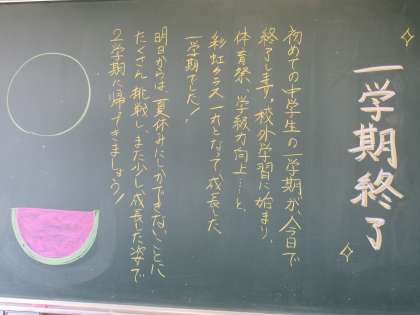 一学期終了
初めての中学生の一学期が、今日で
終了します。校外学習に始まり、
体育祭、学級力向上…と、
彩虹クラス一丸となって、成長した
一学期でした！
明日からは、夏休みにしかできないことに
たくさん挑戦し、また少し成長した姿で
2学期に帰ってきましょう！